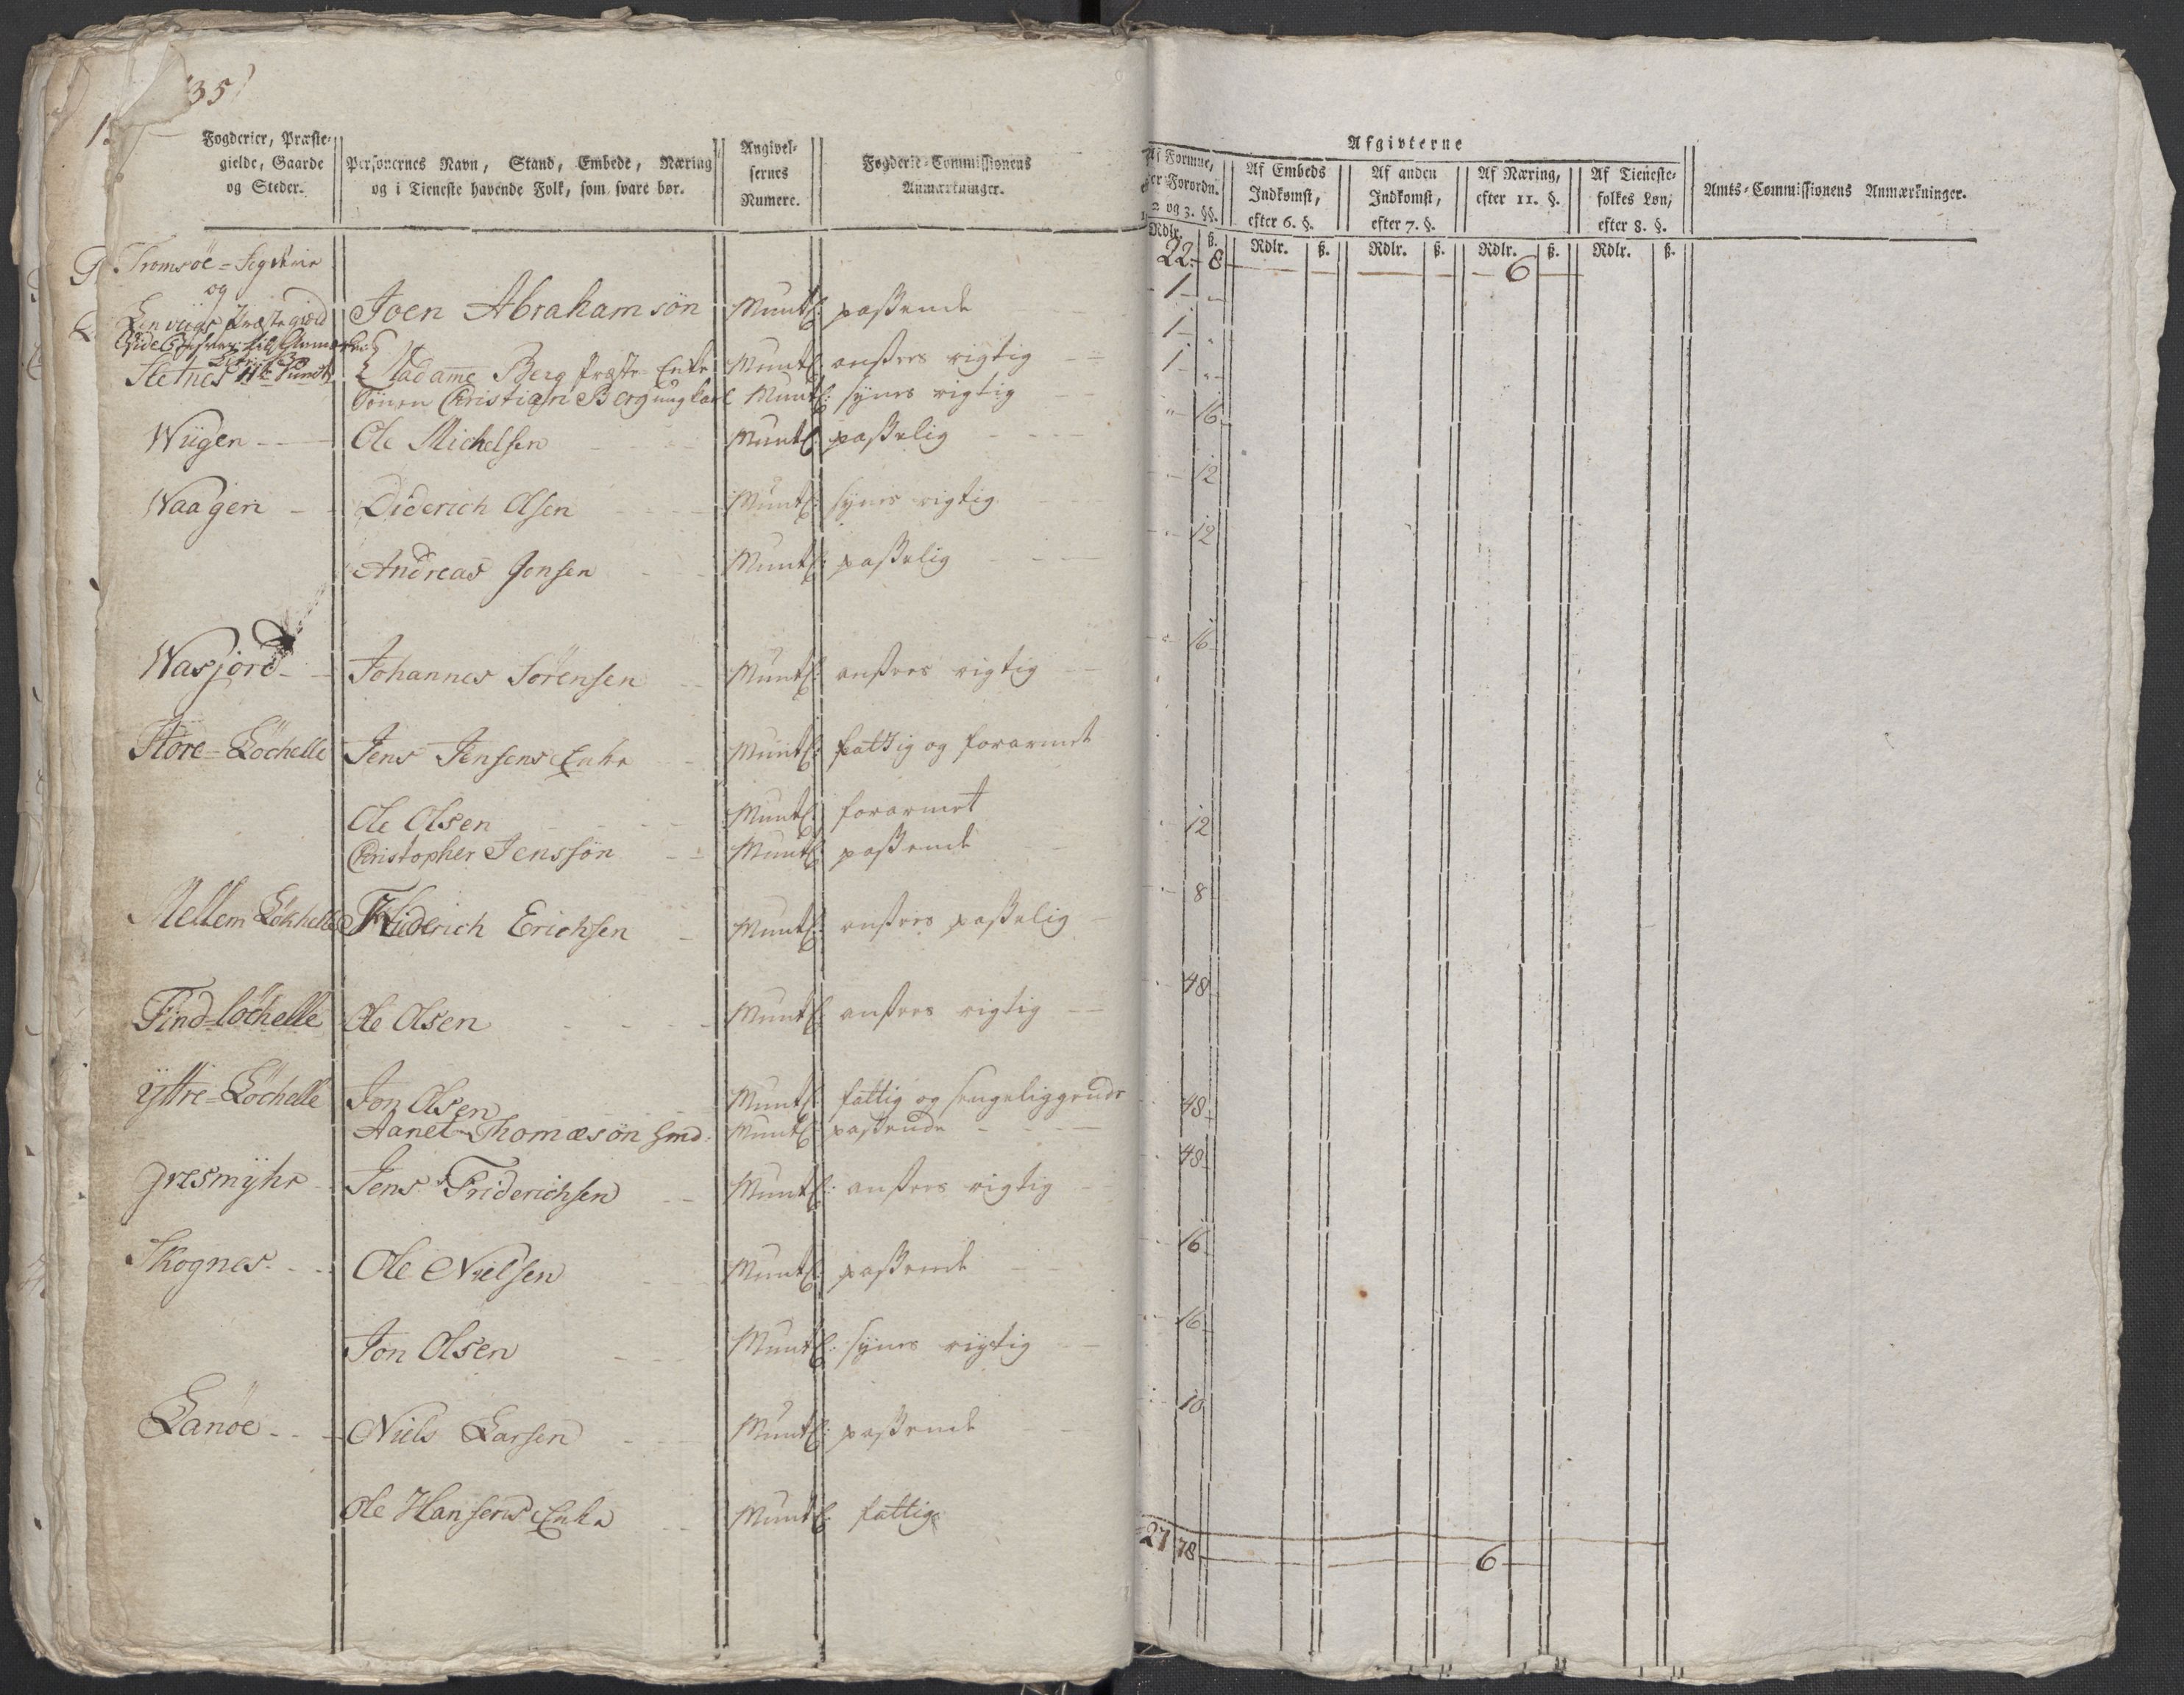 35
Fogderier, Præste-
gielde, Gaarde
og Steder.
Personernes Navn, Stand, Embede, Næring
og i Tieneste havende Folk, som svare bør.
Angivel-
sernes
Numere.
Fogderie-Commissionens
Anmærkninger.
Tromsöe
og
Joen Abrahamsön Muntl: passende
Madame Berg Præste Enke Muntl: ansees rigtig
Sönen Christian Berg ungkarl Muntl: synes rigtig
Wügen Ole Michelsen Muntl: passelig
Waagen Diderich Olsen Muntl: synes rigtig
Andreas Jonsen Muntl: passelig
Wasjord Johannes Sörensen Muntl: ansees rigtig
Store-Löchelle Jens Jensens Enke Muntl: fattig og forarmet
Ole Olsen Muntl: forarmet
Christopher Jenssön Muntl: passende
Mellem Löchelle Friderich Erichsen Muntl: ansees passelig
Find-löchelle Ole Olsen Muntl: ansees rigtig
ÿttre-Löchelle Jon Olsen Muntl: fattig og sengeliggende
Aanet Thomæsön Muntl: passende
Gresmÿhr Jens Friderichsen Muntl: ansees rigtig
Skognes Ole Nielsen Muntl: passende
Jon Olsen Muntl: synes rigtig
Lanöe Niels Larsen Muntl: passende
Ole Hansens Enke Muntl: fattig
Afgivterne
Af Formue,
efter Forordn.
1, 2 og 3. §§.
Af Embeds
Indkomst,
efter 6. §.
Af anden
Indkomst,
efter 7. §.
Af Næring,
efter 11. §.
Af Tieneste-
folkes Løn,
efter 8. §.
Amts-Commissionens Anmærkninger.
Rdlr. ß. Rdlr. ß. Rdlr. ß. Rdlr. ß. Rdlr. ß.
22 8 6
1
1
1
16
12
12
16
12
8
48
48
48
16
16
10
27 78 6